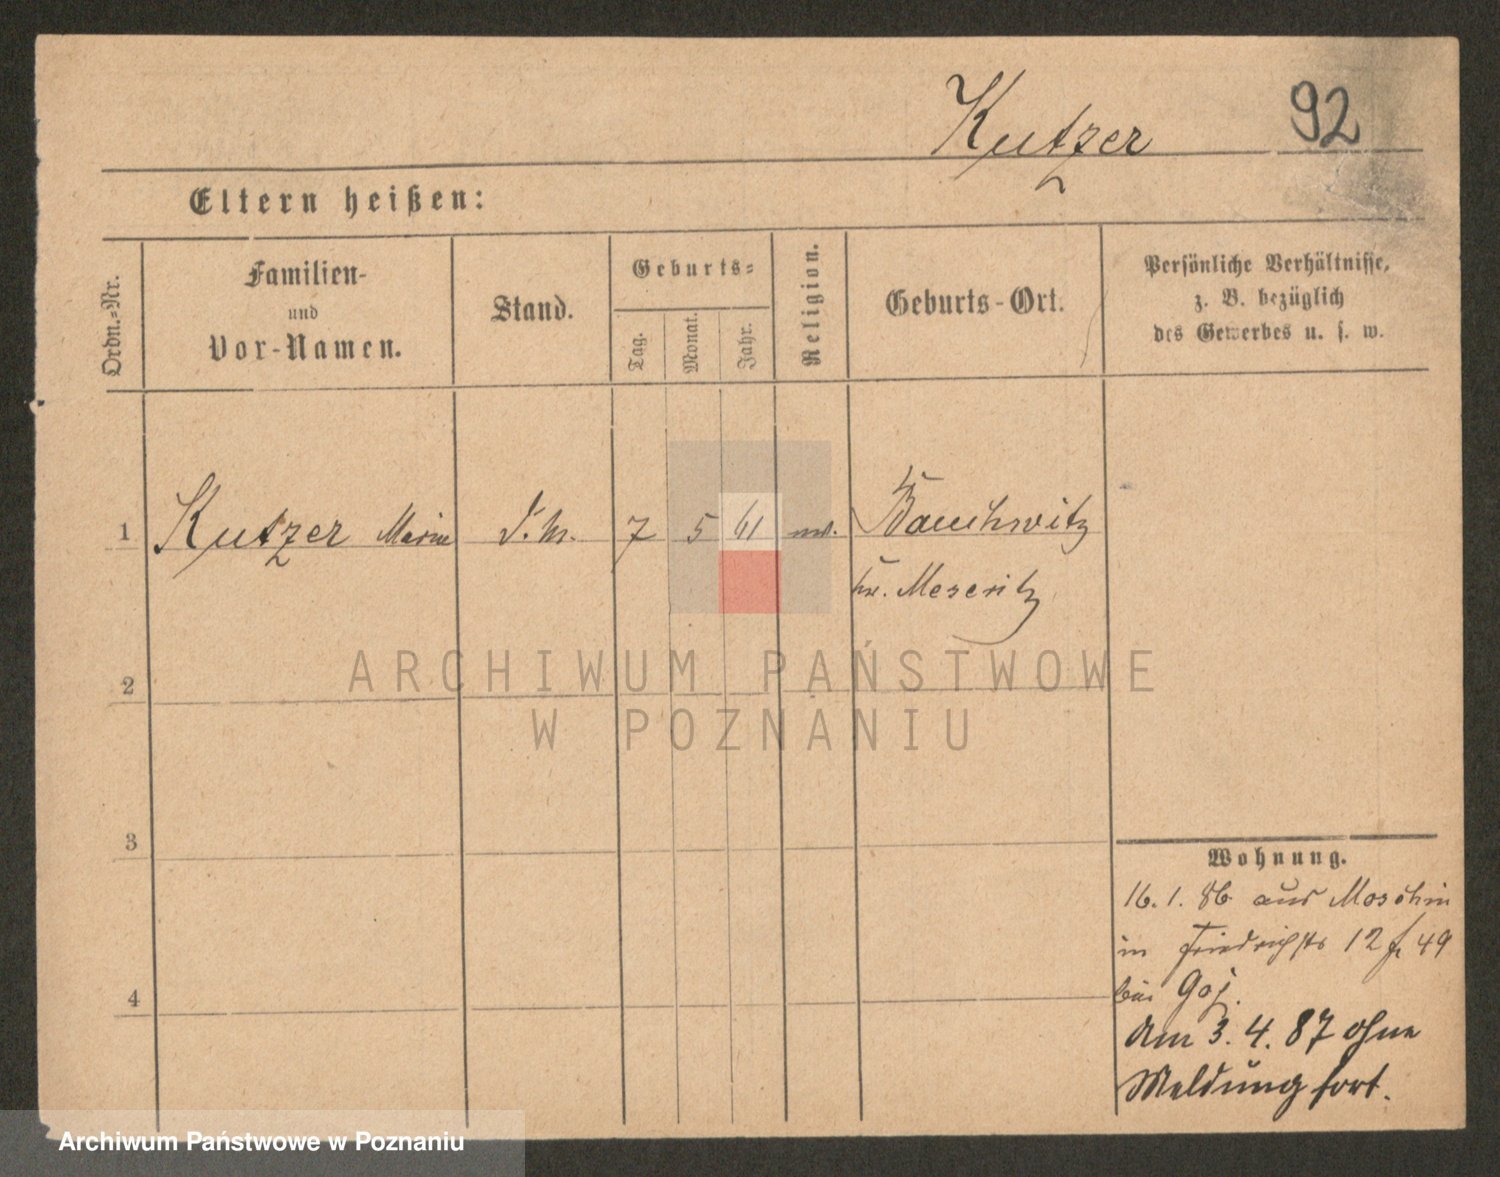 Kutzer 92
Eltern heißen:
Ordn.-Nr.
Familien-
und
Vor-Namen.
Stand.
Geburts-
Tag.
Monat.
Jahr.
Religion.
Geburts-Ort.
Persönliche Verhältnisse,
z. B. bezüglich
des Gewerbes u. s. w.
1 Kutzer Marie 7 5 61 Bauchwitz
Kr. Meseritz
2
3
4
Wohnung.
16. 1. 86 aus Moschin
in Friedrichstr 12 49
bei Goj.
Am 3. 4. 87 ohne
Meldung fort.
ARCHIWUM PAŃSTWOWE
W POZNANIU
Archiwum Państwowe w Poznaniu